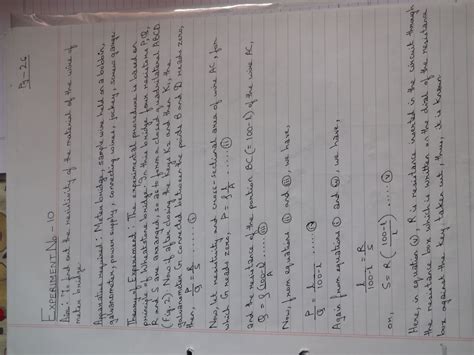 Pg-26
EXPERIMENT NO - 10
Aim: To find out the resistivity of the material of the wire of
meter bridge.
Apparatus required: Meter bridge, sample wire held on a bobbin,
galvanometer, power supply, connecting wires, jockey, screw gauge
Theory of Experiment: The experimental procedure is based on
principle of Whetstone bridge. In this bridge four resistors P, Q,
R and S are arranged, so as to form a closed quadrilateral ABCD
(Fig. 2). Thus, if after closing the keys and then K₁, the
galvanometer G, connected between the points B and D reads zero,
then, P/Q = R/S ..... (i)
Now, let resistivity and cross-sectional area of wire AC, for
which G reads zero, P = ρ l/A ..... (ii)
and the resistance of the portion BC (= 100-l) of the wire AC,
Q = ρ (100-l)/A ..... (iii)
Now, from equations (ii) and (iii), we have,
P/Q = l/100-l ..... (iv)
Again from equations (i) and (iv), we have,
l/100-l = R/S
or, S = R (100-l/l) ..... (v)
Here, in equation (v), R is resistance inserted in the circuit through
the resistance box which is written on the dial of the resistance
box against the key taken out, thus, it is known